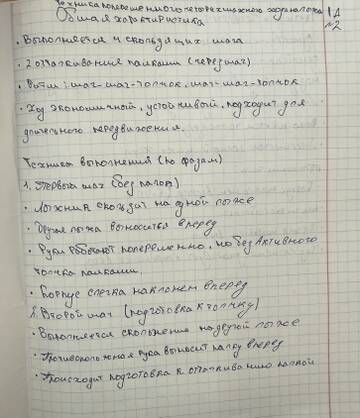 Техника попеременного четырехшажного хода на лыжах
Общая характиристика
1А
№2
• Выполняется 4 скользящих шага
• 2 отталкивания палками (через шаг)
• Ритм: шаг-шаг-толчок, шаг-шаг-толчок
• Ход экономичный, устойчивый, подходит для
длительного передвижения.
Техника выполнения (по фазам)
1. Первый шаг (без палок)
• Лыжник скользит на одной лыже
• Другая лыжа выноситься вперед
• Руки работают попеременно, но без Активного
толчка палками.
• Корпус слегка наклонем вперед
2. Второй шаг (подготовка к толчку)
• Выполняется скольжение на другой лыже
• Противоположная рука выносит палку вперед
• Происходит подготовка к отталкиванию палкой